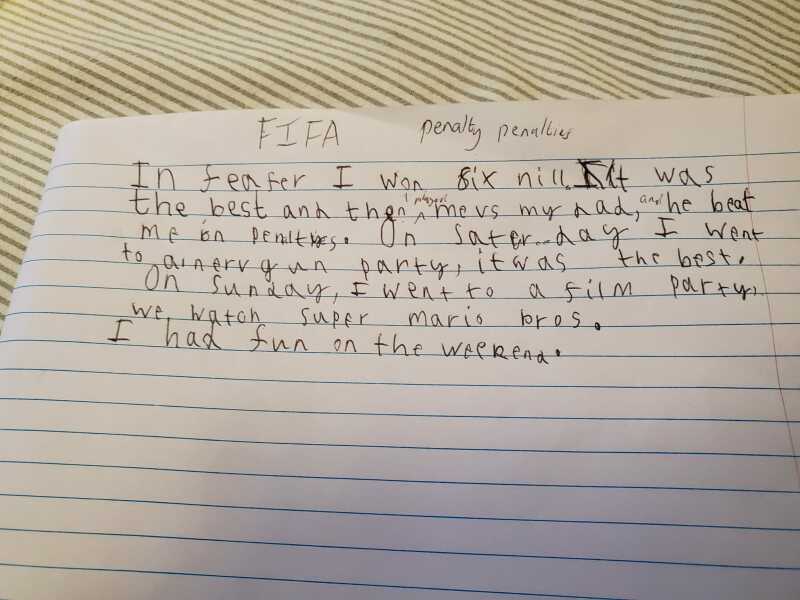 FIFA penalty penalties
In feafer I won six nill. It was
the best and then i played me vs my dad, and he beat
me on penalties. On sater day I went
to a nerv gun party, it was the best.
On Sunday, I went to a film party,
we watch super mario bros.
I had fun on the weekend.